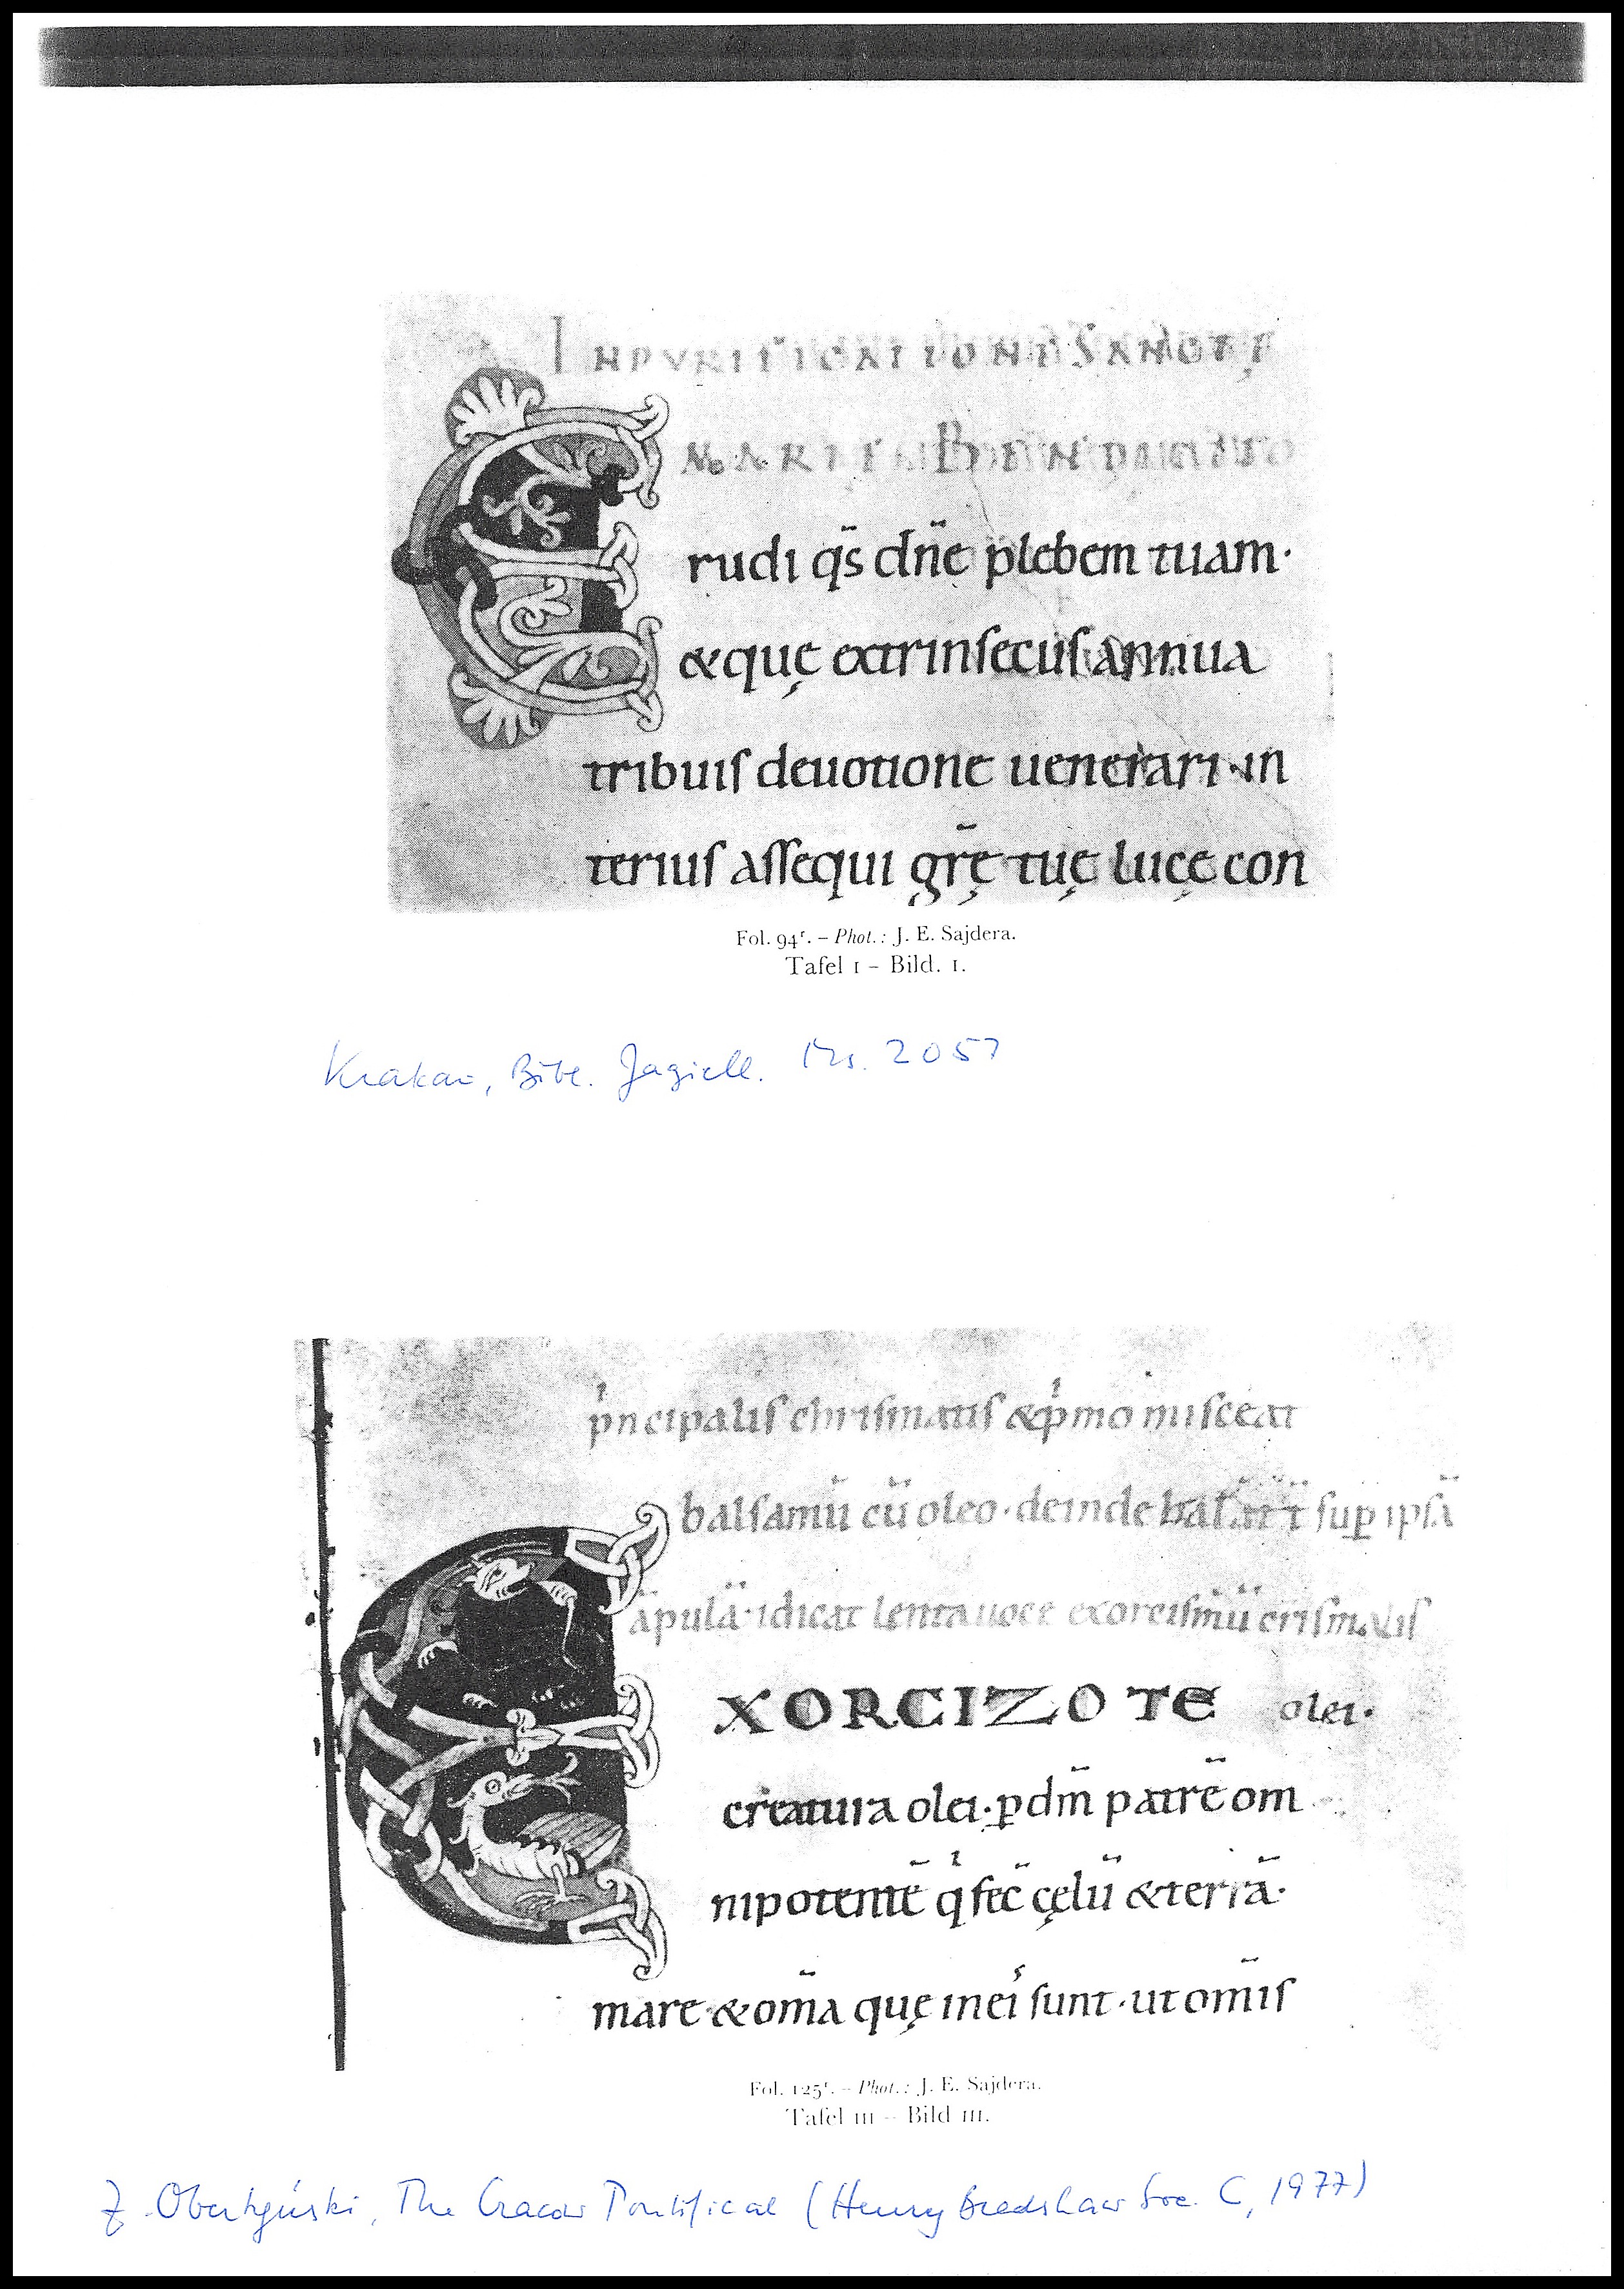 INPVRIFICATIONE SANCTĘ
MARIE BENEDICTIO
Erudi q̄s dn̄e plebem tuam·
& quę extrinſecuſ annua
tribuiſ deuotione uenerari· in
teriuſ aſſequi gr̄ę tuę lucę con
Fol. 94ʳ. – Phot.: J. E. Sajdera.
Tafel I – Bild. I.
Krakau, Bibl. Jagiell. Ms. 2057
pͥncipaliſ chriſmatiſ & pͥmo miſceat
balſamū cū oleo· deinde ſuꝑ ipſā
āpulā· idicat lenta uoce exorciſmū criſmatiſ
EXORCIZO TE olei·
creatura olei· ꝑ dm̄ patrē om
nipotentē qͥ fec̄ cęlū & terrā·
mare & om̄a quę in eiſ ſunt· ut om̄iſ
Fol. 125ʳ. – Phot.: J. E. Sajdera.
Tafel III – Bild III.
Z. Obertyński, The Cracow Pontifical (Henry Bradshaw Soc. C, 1977)